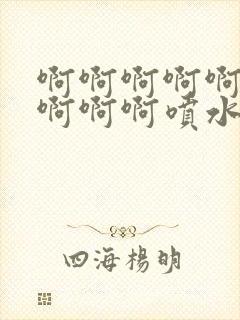 啊啊啊啊啊
啊啊啊噴水
四海楊明